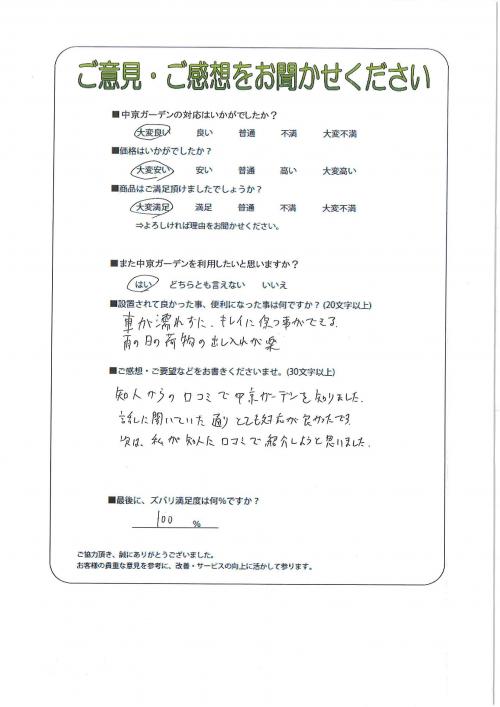 ご意見・ご感想をお聞かせください
■中京ガーデンの対応はいかがでしたか？
大変良い 良い 普通 不満 大変不満
■価格はいかがでしたか？
大変安い 安い 普通 高い 大変高い
■商品はご満足頂けましたでしょうか？
大変満足 満足 普通 不満 大変不満
⇒よろしければ理由をお聞かせください。
■また中京ガーデンを利用したいと思いますか？
はい どちらとも言えない いいえ
■設置されて良かった事、便利になった事は何ですか？(20文字以上)
車が濡れずに、キレイに保つ事ができる。
雨の日の荷物の出し入れが楽
■ご感想・ご要望などをお書きくださいませ。(30文字以上)
知人からの口コミで中京ガーデンを知りました。
話しに聞いていた通りとても対応が良かったです。
次は、私が知人に口コミで紹介しようと思いました。
■最後に、ズバリ満足度は何％ですか？
100 %
ご協力頂き、誠にありがとうございました。
お客様の貴重な意見を参考に、改善・サービスの向上に活かして参ります。